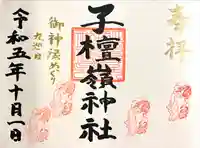 奉拝
子檀嶺神社
御神渡めぐり
令和五年十月一日